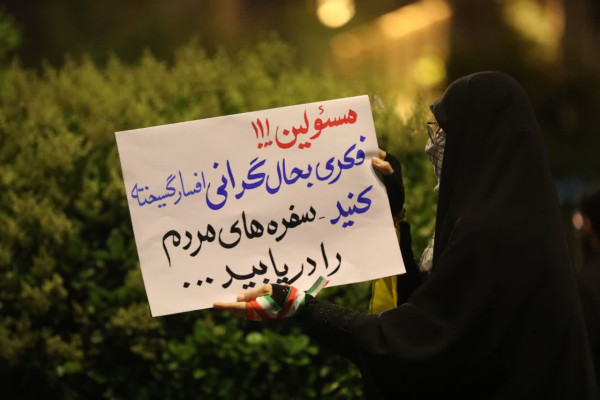 مسئولین !!!
فکری بحال گرانی افسارگسیخته
کنید _ سفره های مردم
را دریابید ...